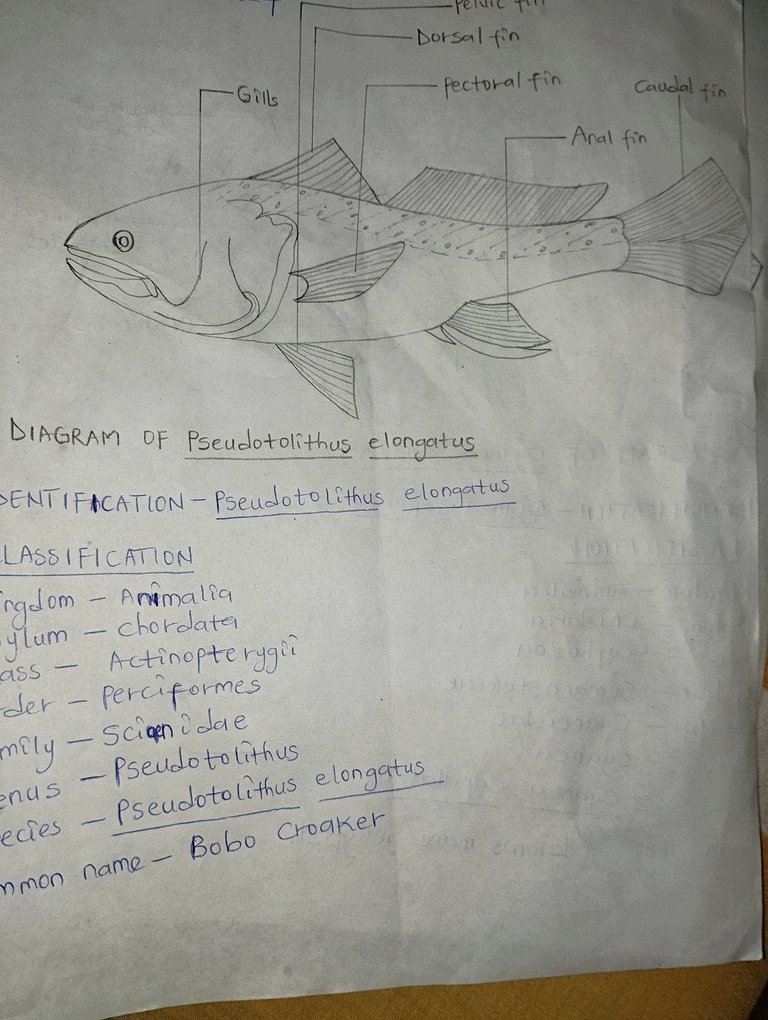 Pelvic fin
Dorsal fin
Pectoral fin
Caudal fin
Gills
Anal fin
DIAGRAM OF Pseudotolithus elongatus
DENTIFICATION - Pseudotolithus elongatus
LASSIFICATION
ngdom - Animalia
ylum - Chordata
ass - Actinopterygii
der - Perciformes
mily - Sciaenidae
enus - Pseudotolithus
ecies - Pseudotolithus elongatus
mmon name - Bobo Croaker